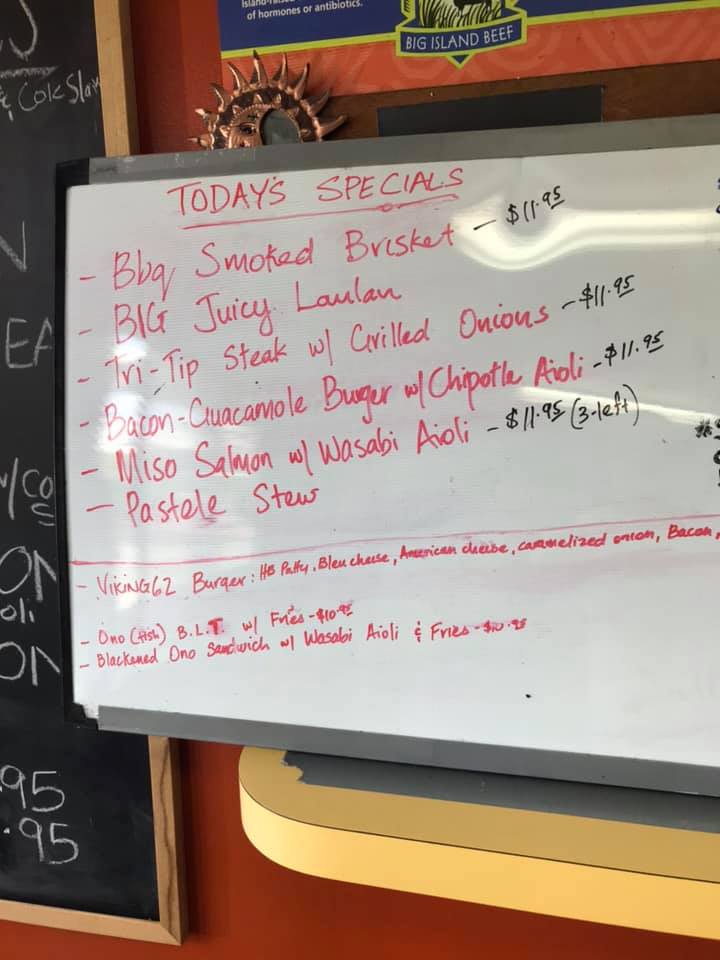 of hormones or antibiotics.
BIG ISLAND BEEF
& Cole Slaw
TODAY'S SPECIALS
- Bbq Smoked Brisket - $11.95
- BIG Juicy Laulau
- Tri-Tip Steak w/ Grilled Onions - $11.95
- Bacon-Guacamole Burger w/ Chipotle Aioli - $11.95
- Miso Salmon w/ Wasabi Aioli - $11.95 (3-left)
- Pastele Stew
- VIKING62 Burger: HB Patty, Bleu cheese, American cheese, caramelized onion, Bacon,
- Ono (fish) B.L.T. w/ Fries - $10.95
- Blackened Ono Sandwich w/ Wasabi Aioli & Fries - $10.95
EA
w/Co
ON
oli
ON
95
.95